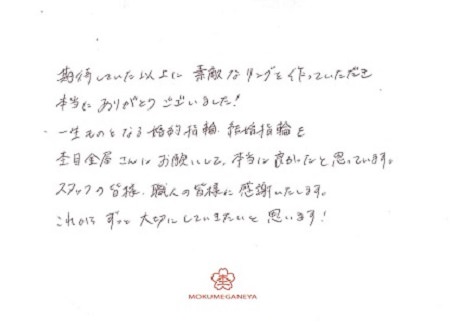 期待していた以上に 素敵なリングを作っていただき
本当に ありがとうございました!
一生ものとなる婚約指輪、結婚指輪を
杢目金屋さんにお願いして、本当に良かったと思っています。
スタッフの皆様、職人の皆様に感謝いたします。
これからずっと大切にしていきたいと思います!
杢
MOKUMEGANEYA